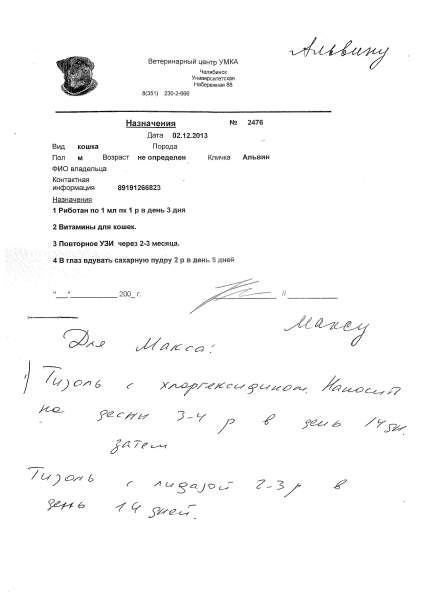 Альвину
Ветеринарный центр УМКА
Челябинск
Университетская
Набережная 88
8(351) 230-2-666
Назначения № 2476
Дата 02.12.2013
Вид кошка Порода
Пол м Возраст не определен Кличка Альвин
ФИО владельца
Контактная
информация 89191266823
Назначения
1 Риботан по 1 мл пк 1 р в день 3 дня
2 Витамины для кошек.
3 Повторное УЗИ через 2-3 месяца.
4 В глаз вдувать сахарную пудру 2 р в день 5 дней
"___"____________ 200_ г. ____________ // __________
Максу
Для Макса:
1) Тизоль с хлоргексидином. Наносить
на десны 3-4 р в день 14 дн.
затем
Тизоль с лидазой 2-3 р в
день 14 дней.